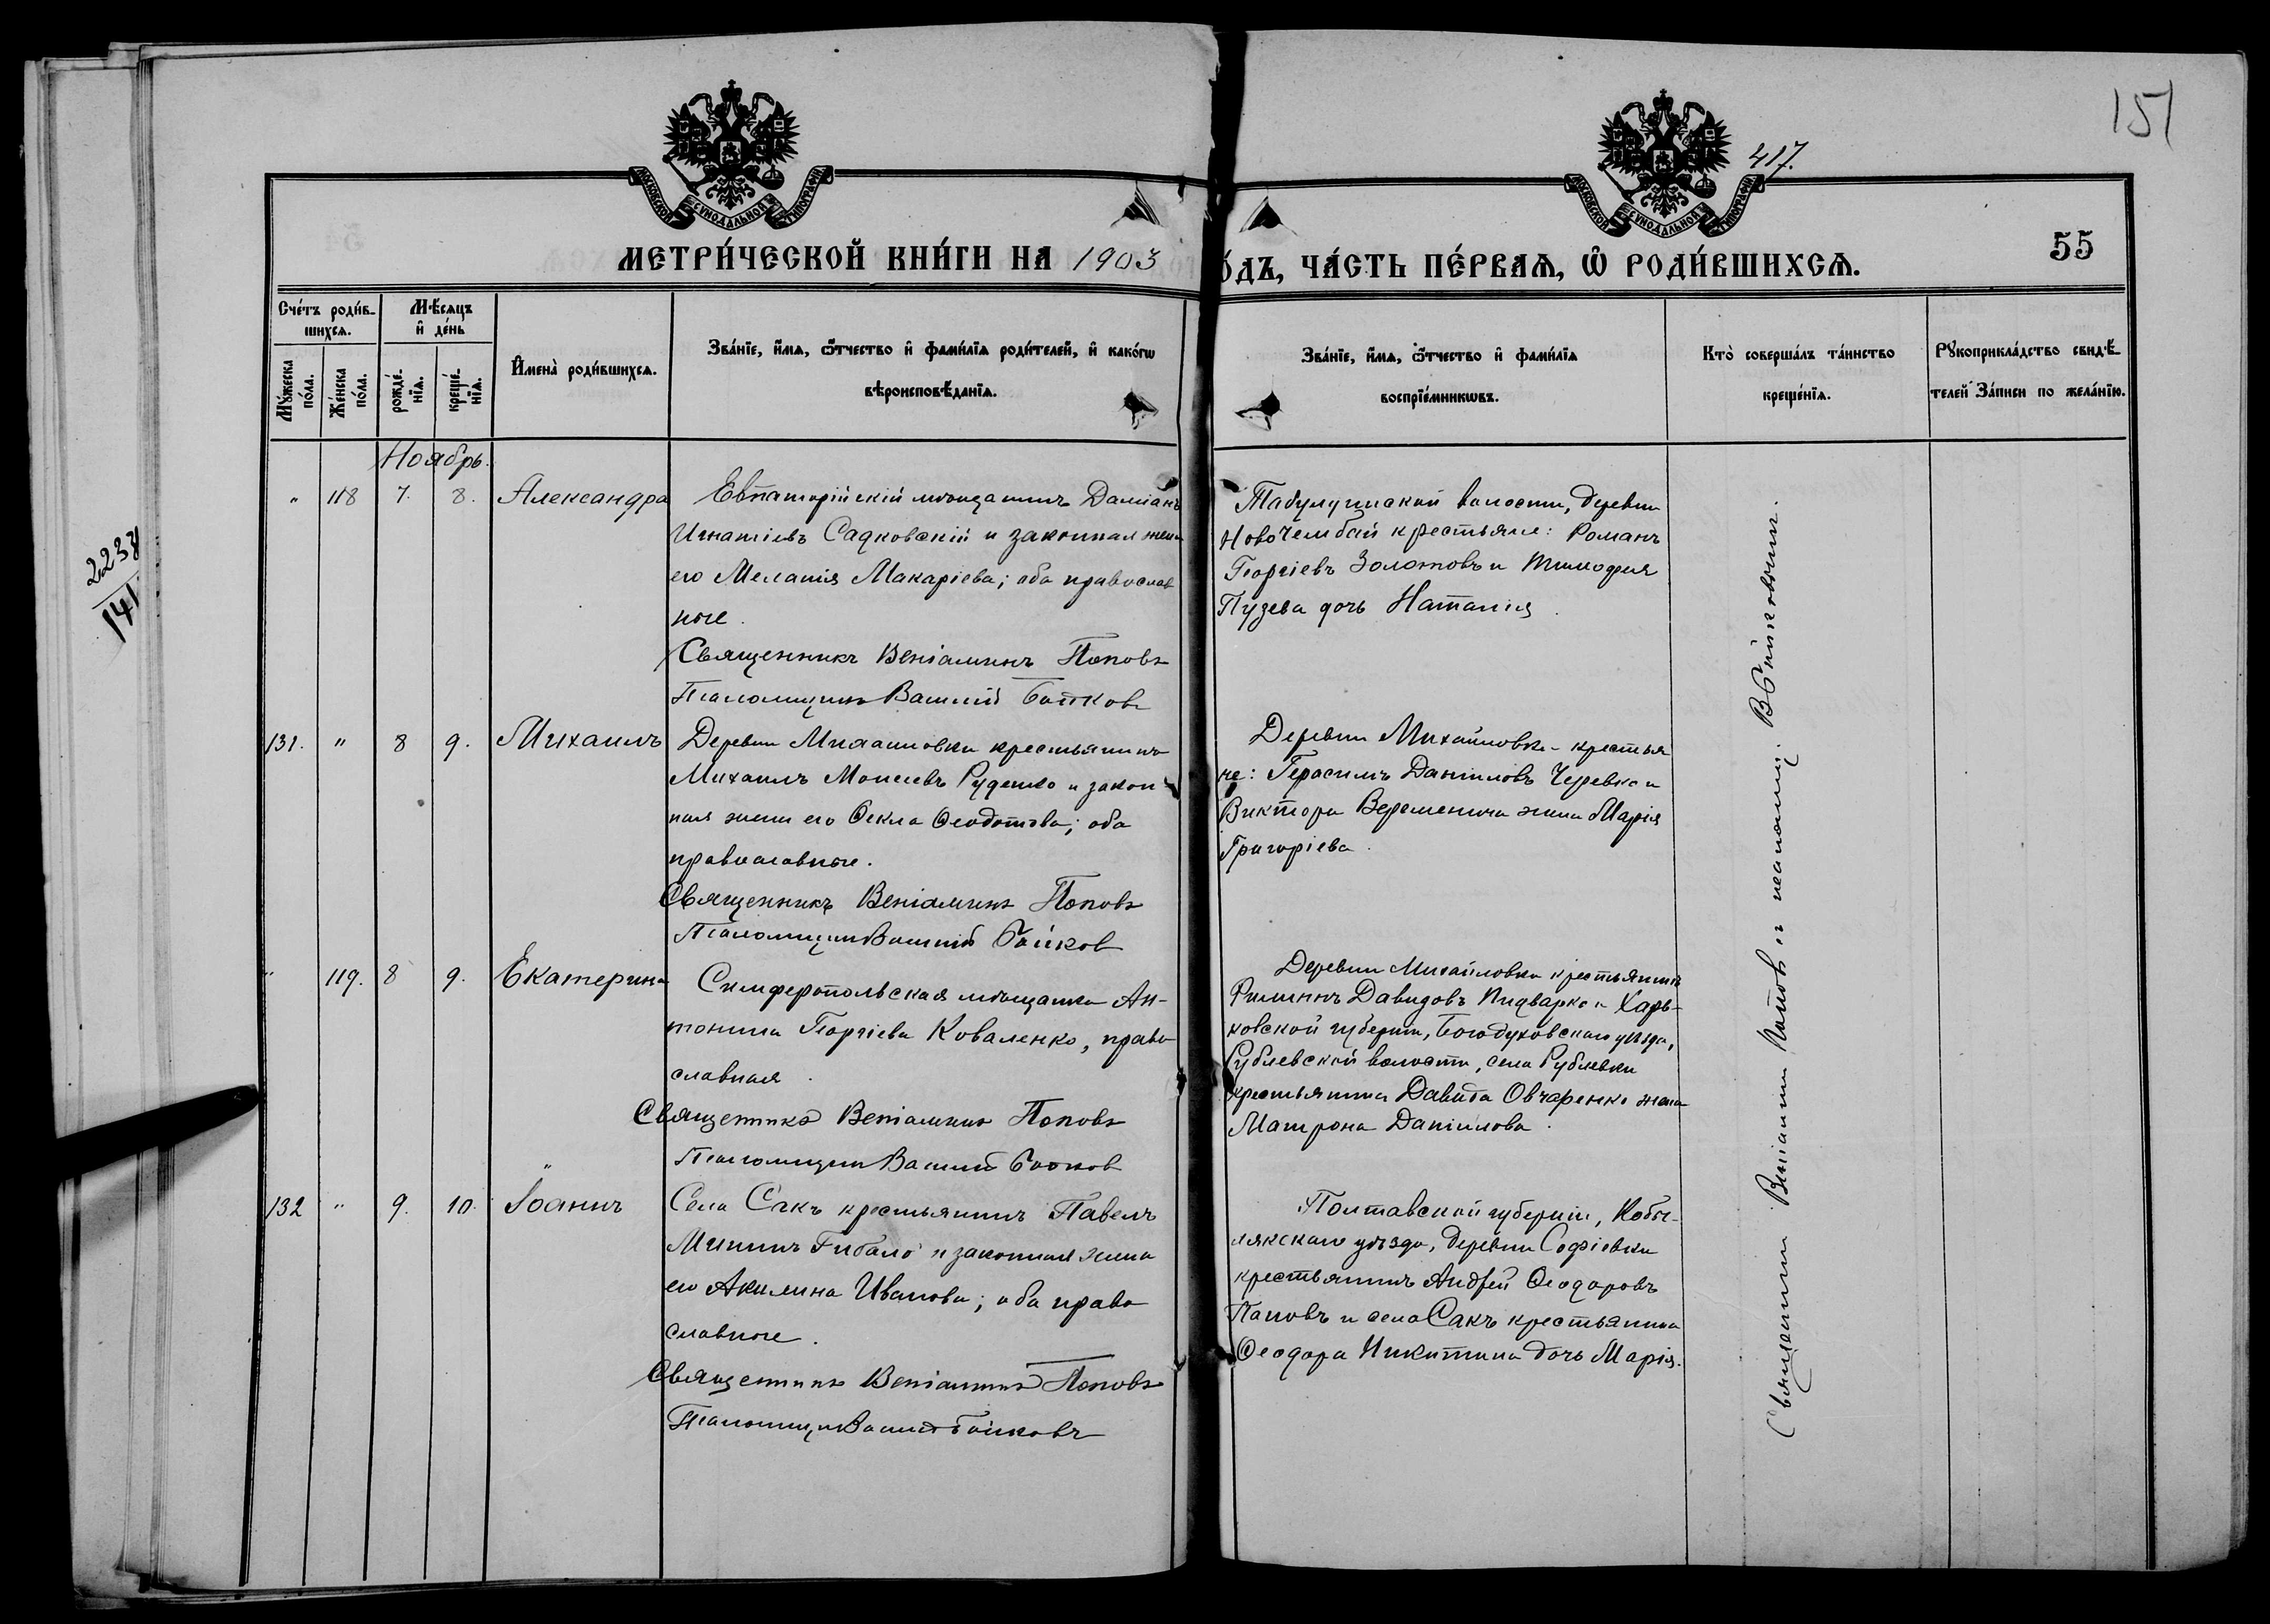 151
417.
МОСКОВСКОЙ СѴНОДАЛЬНОЙ ТИПОГРАФІИ
МОСКОВСКОЙ СѴНОДАЛЬНОЙ ТИПОГРАФІИ
МЕТРИ́ЧЕСКОЙ КНИ́ГИ НА 1903
О́ДЪ, ЧА́СТЬ ПЕ́РВАѦ, Ѽ РОДИ́ВШИХСѦ.
55
Сче́тъ роди́в-
шихсѧ.
Мѣ́сяцъ
и҆ де́нь
Мꙋ́жеска
по́ла.
Же́нска
по́ла.
рожде́-
нїѧ.
креще́-
нїѧ.
И҆мена̀ роди́вшихсѧ.
Зва́нїе, и҆́мѧ, ѻ҆́тчество и҆ фами́лїѧ роди́телей, и҆ како́гѡ
вѣроисповѣ́данїѧ.
Зва́нїе, и҆́мѧ, ѻ҆́тчество и҆ фами́лїѧ
воспрїе́мникѡвъ.
Кто̀ соверша́лъ та́инство
креще́нїѧ.
Рꙋкоприкла́дство свидѣ́-
телей за́писи по жела́нїю.
2238
141
Ноябрь.
" 118 7. 8. Александра
Евпаторійскій мѣщанинъ Даміанъ
Игнатіевъ Садковскій и законная жена
его Меланія Макаріева; оба православ
ные.
Священникъ Веніаминъ Поповъ
Псаломщикъ Василій Бойков
Табулдинской волости, деревни
Ново Чембай крестьяне: Романъ
Георгіевъ Золотовъ и Тимофея
Пузева дочь Наталія.
131. " 8 9. Михаилъ
Деревни Михайловки крестьянинъ
Михаилъ Моисеевъ Руденко и закон-
ная жена его Ѳекла Ѳеодотова; оба
православные.
Священникъ Веніаминъ Поповъ
Псаломщик Василій Бойков
Деревни Михайловки крестья
не: Герасимъ Даніиловъ Черевко и
Виктора Веременича жена Марія
Григоріева.
" 119. 8 9. Екатерина
Симферопольская мѣщанка Ан-
тонина Георгіева Коваленко, право
славная.
Священникъ Веніаминъ Поповъ
Псаломщик Василій Бойков
Деревни Михайловки крестьянинъ
Филиппъ Давидовъ Пидварко и Харь-
ковской губерніи, Богодуховскаго уѣзда,
Рублевской волости, села Рублевки
крестьянина Давида Овчаренко жена
Матрона Даніилова.
132 " 9. 10. Іоаннъ
Села Сакъ крестьянинъ Павелъ
Мининъ Гибало и законная жена
его Акилина Иванова; оба право
славные.
Священникъ Веніаминъ Поповъ
Псаломщик Василій Бойковъ
Полтавской губерніи, Кобы-
лякскаго уѣзда, деревни Софіевки
крестьянинъ Андрей Ѳеодоровъ
Поповъ и села Сакъ крестьянина
Ѳеодора Никитина дочь Марія.
Священникъ Веніаминъ Поповъ и псаломщ. В. Бойковъ